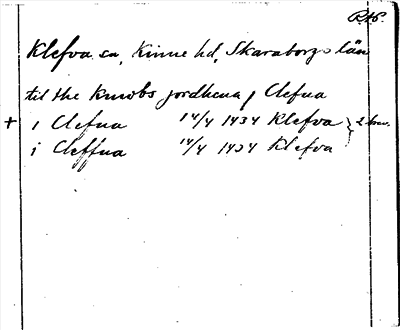 RAP.
Klefva sn, Kinne hd, Skaraborgs län
til the Knwbs jordhena j Clefua
+ i Clefua 14/4 1434 Klefva } 2 brev.
i Cleffua 14/4 1434 Klefva